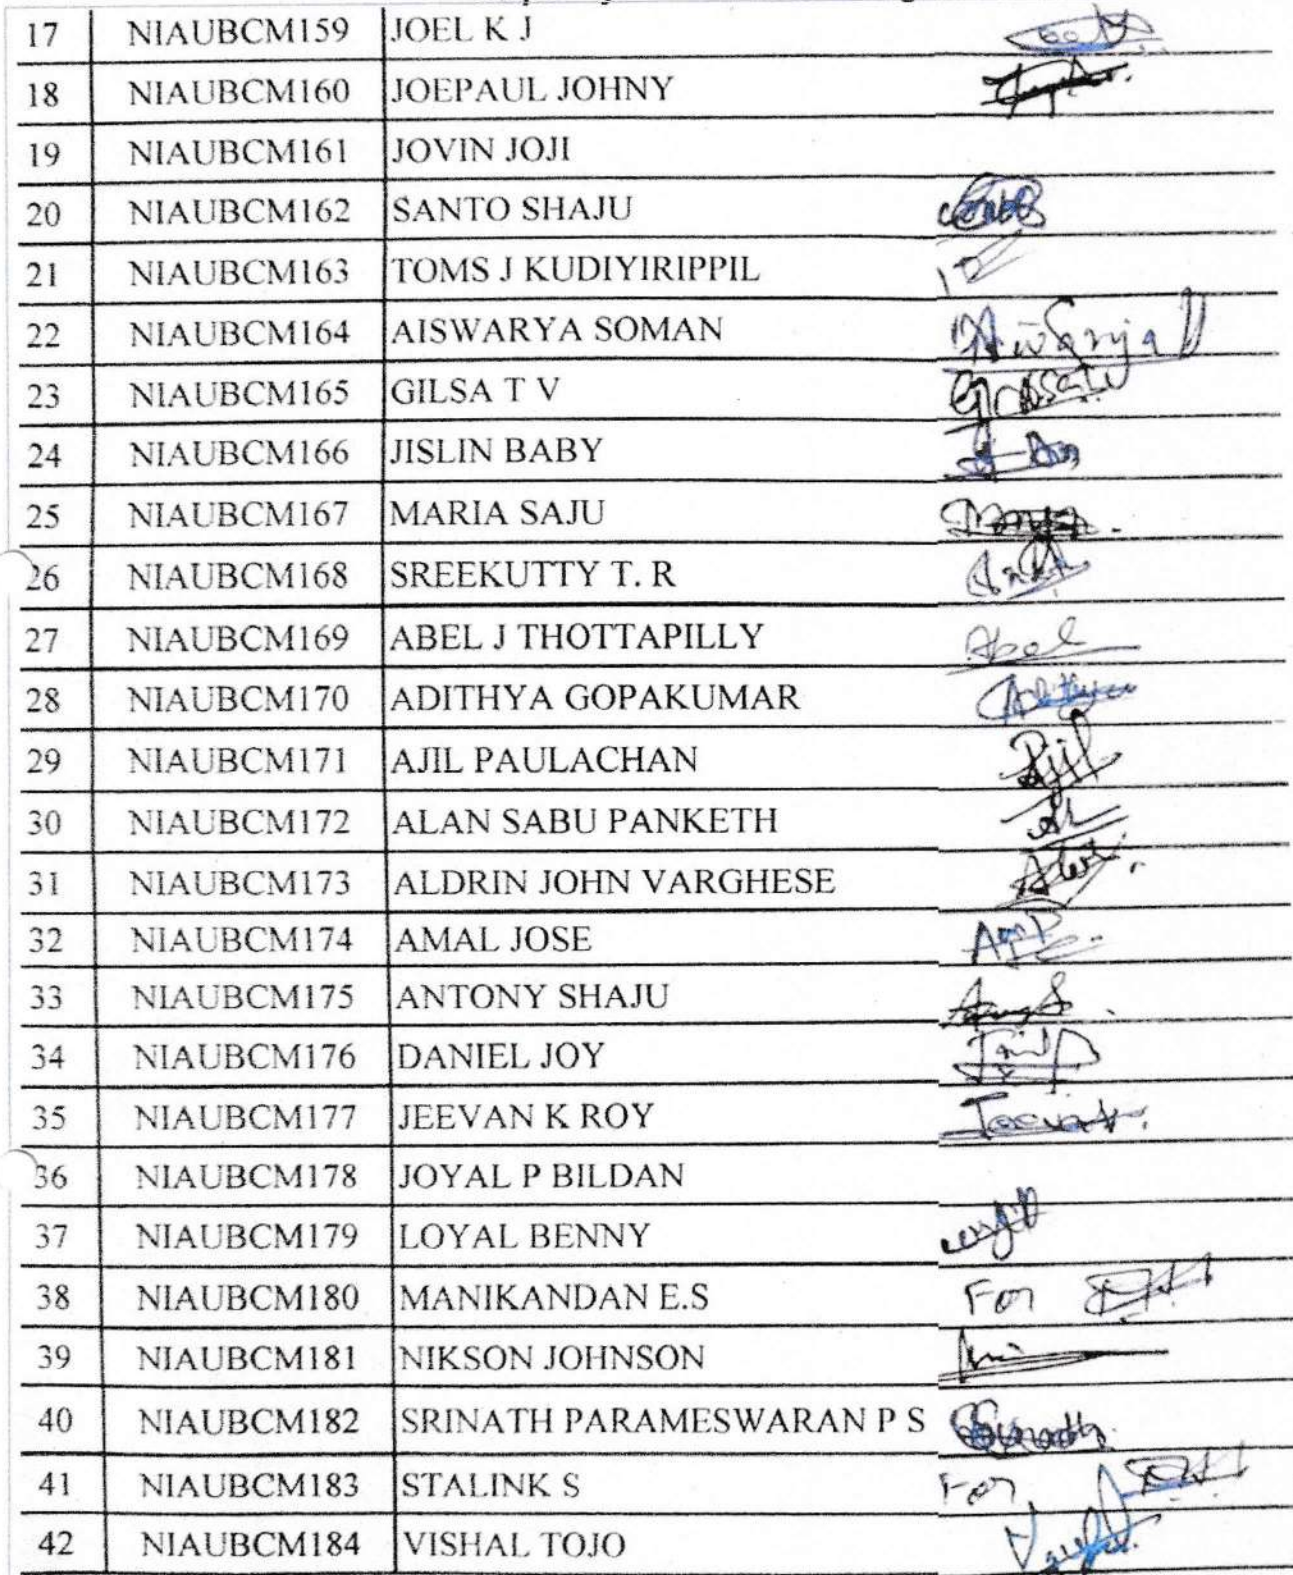 17 NIAUBCM159 JOEL K J
18 NIAUBCM160 JOEPAUL JOHNY
19 NIAUBCM161 JOVIN JOJI
20 NIAUBCM162 SANTO SHAJU
21 NIAUBCM163 TOMS J KUDIYIRIPPIL
22 NIAUBCM164 AISWARYA SOMAN
23 NIAUBCM165 GILSA T V
24 NIAUBCM166 JISLIN BABY
25 NIAUBCM167 MARIA SAJU
26 NIAUBCM168 SREEKUTTY T. R
27 NIAUBCM169 ABEL J THOTTAPILLY Abel
28 NIAUBCM170 ADITHYA GOPAKUMAR Adithya
29 NIAUBCM171 AJIL PAULACHAN Ajil
30 NIAUBCM172 ALAN SABU PANKETH
31 NIAUBCM173 ALDRIN JOHN VARGHESE
32 NIAUBCM174 AMAL JOSE
33 NIAUBCM175 ANTONY SHAJU
34 NIAUBCM176 DANIEL JOY
35 NIAUBCM177 JEEVAN K ROY
36 NIAUBCM178 JOYAL P BILDAN
37 NIAUBCM179 LOYAL BENNY
38 NIAUBCM180 MANIKANDAN E.S For
39 NIAUBCM181 NIKSON JOHNSON
40 NIAUBCM182 SRINATH PARAMESWARAN P S
41 NIAUBCM183 STALINK S For
42 NIAUBCM184 VISHAL TOJO